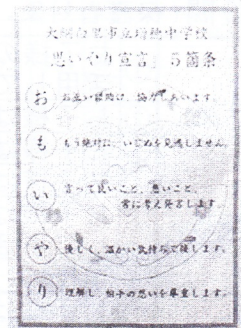 大網白里市立瑞穂中学校
「思いやり宣言」5箇条
お お互い様助け、協力しあいます。
も もう絶対に、いじめを見逃しません。
い 言って良いこと、悪いこと、
常に考え発言します
や 優しく、温かい気持ちで接します。
り 理解し、相手の思いを尊重します。